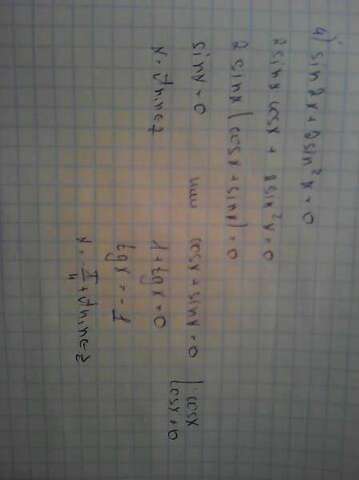 4) sin2x + 2sin²x = 0
2sinx·cosx + 2sin²x = 0
2sinx(cosx + sinx) = 0
sinx = 0 или cosx + sinx = 0 |:cosx cosx≠0
x = πn, n∈Z 1 + tgx = 0
tgx = -1
x = -π/4 + πn, n∈Z